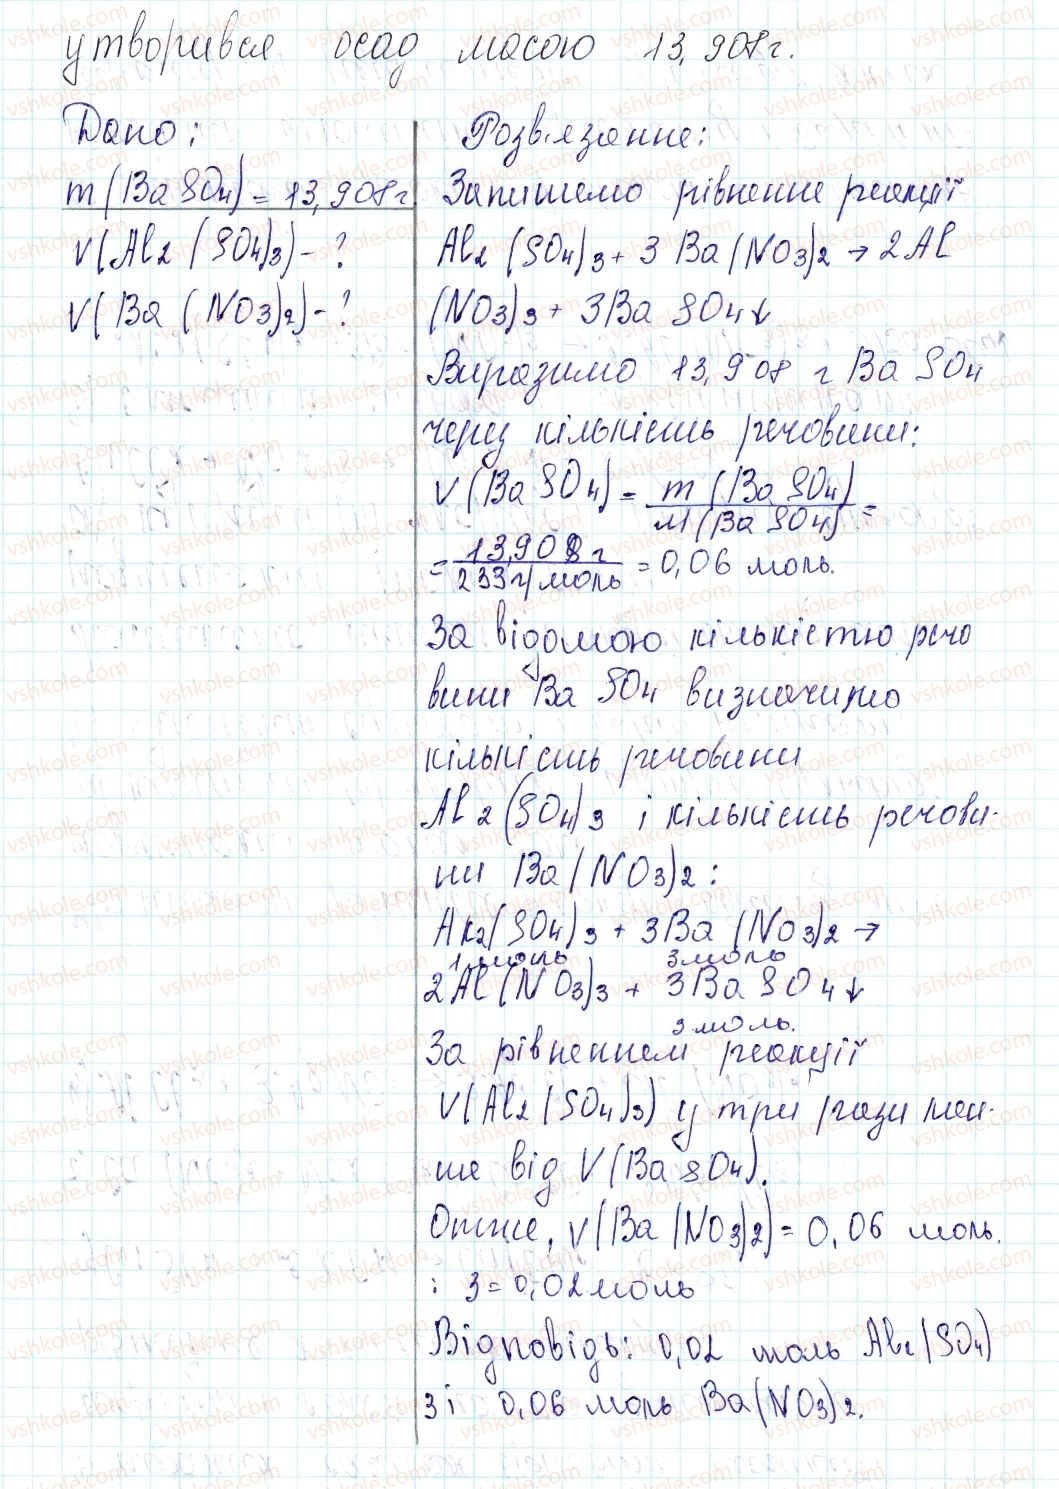 утворився осад масою 13,908г.
Дано:
m(BaSO4)=13,908г
ν(Al2(SO4)3)-?
ν(Ba(NO3)2)-?
Розв'язання:
Запишемо рівняння реакції
Al2(SO4)3+3Ba(NO3)2→2Al
(NO3)3+3BaSO4↓
Виразимо 13,908 г BaSO4
через кількість речовини:
ν(BaSO4)= m(BaSO4)/M(BaSO4) =
= 13,908 г/233г/моль = 0,06 моль.
За відомою кількістю речо
вини BaSO4 визначимо
кількість речовини
Al2(SO4)3 і кількість речови-
ни Ba(NO3)2:
Al2(SO4)3 + 3Ba(NO3)2 →
1 моль 3моль
2Al(NO3)3 + 3BaSO4↓
3 моль.
За рівнянням реакції
ν(Al2(SO4)3) у три рази мен-
ше від ν(BaSO4).
Отже, ν(Ba(NO3)2)=0,06 моль.
: 3=0,02моль
Відповідь: 0,02 моль Al2(SO4)
3 і 0,06 моль Ba(NO3)2.